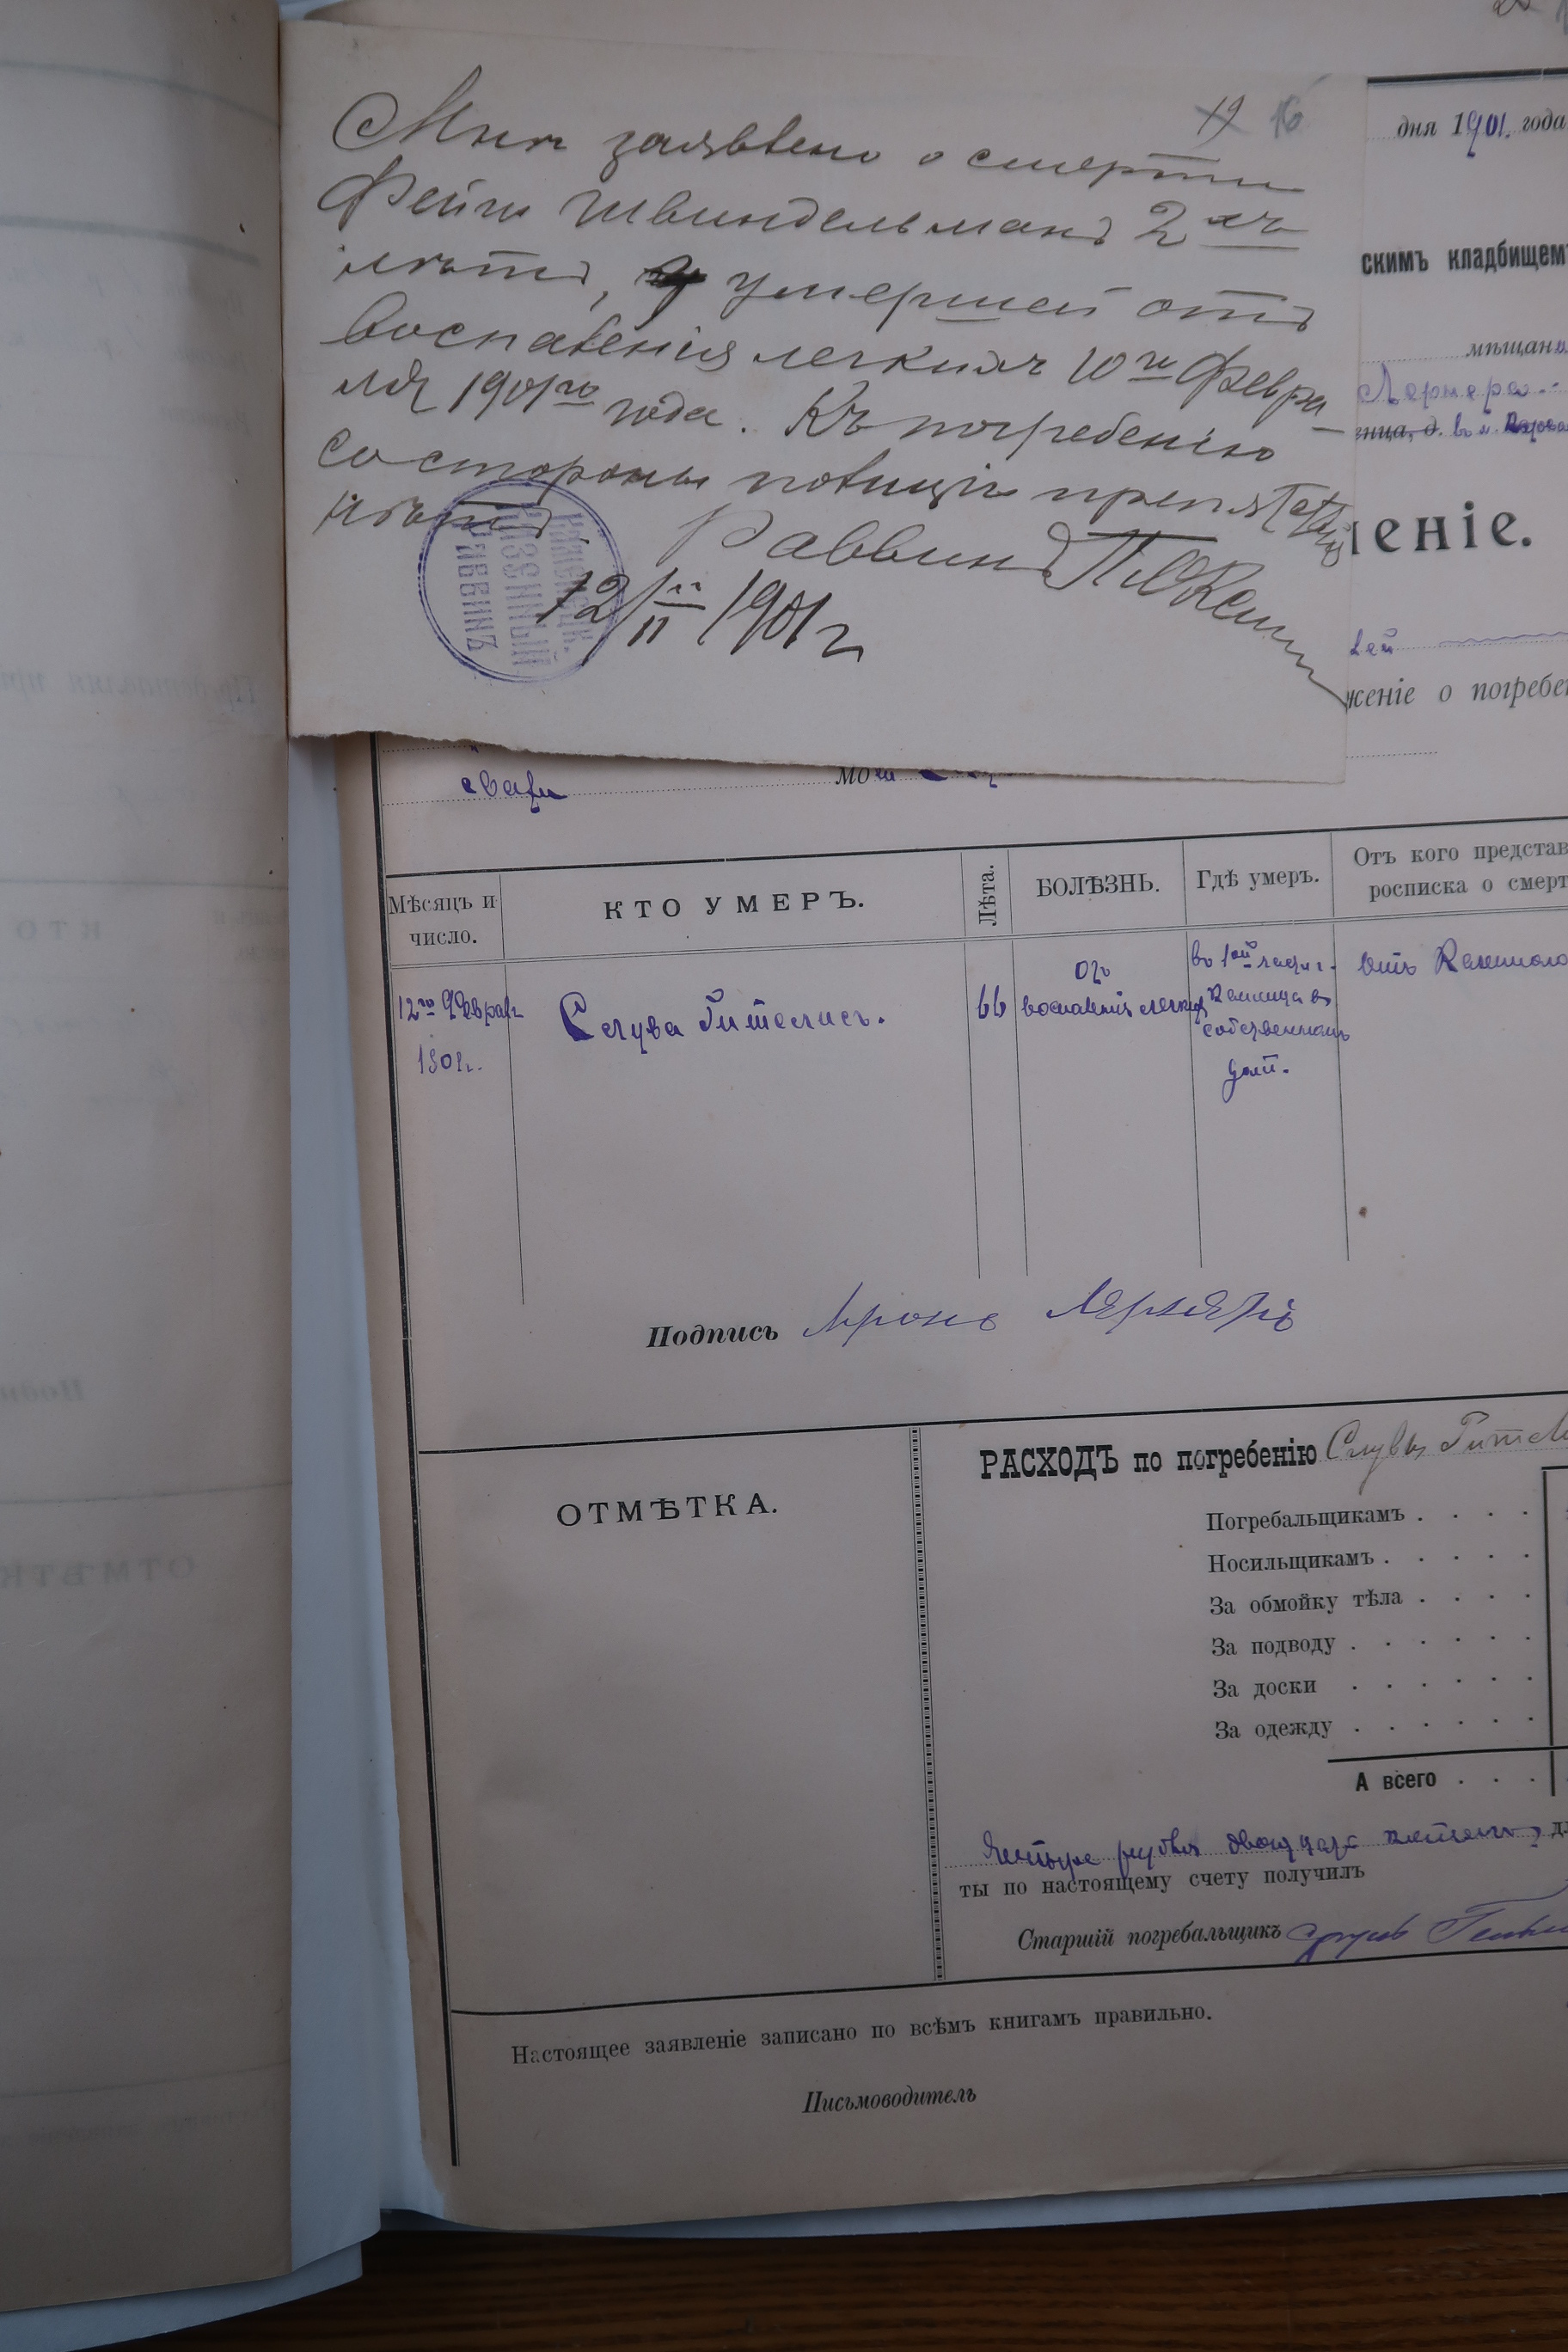 19 16
Мнѣ заявлено о смерти
Фейги Швиндельманъ 2хъ
лѣтъ, умершей отъ
воспаленія легкихъ 10го Февра-
ля 1901го года. Къ погребенію
со стороны полиціи препятствій
нѣтъ
Раввинъ
12/II 1901 г
КАМЕНЕЦК.
КАЗЕННЫЙ
РАВВИНЪ
дня 1901. года
скимъ кладбищемъ
мѣщани
Лернера
енца, д. в м.
леніе.
жение о погребе
сваха
Мѣсяцъ и число. КТО УМЕРЪ. Лѣта. БОЛѢЗНЬ. Гдѣ умеръ. Отъ кого представ
росписка о смерт
12го Феврал 1901г. Слува Гителисъ. 66 отъ воспаленія легкихъ въ 1ой части г. Каменца въ собственномъ домѣ. Отъ Казеннаго
Подпись Аронъ Лярняръ
ОТМѢТКА.
РАСХОДЪ по погребенію Слувы Гител
Погребальщикамъ . . . .
Носильщикамъ . . . . .
За обмойку тѣла . . . .
За подводу . . . . . .
За доски . . . . . .
За одежду . . . . . .
А всего . . .
Четыре рубля двадцать копѣекъ д
ты по настоящему счету получилъ
Старшій погребальщикъ
Настоящее заявленіе записано по всѣмъ книгамъ правильно.
Письмоводитель